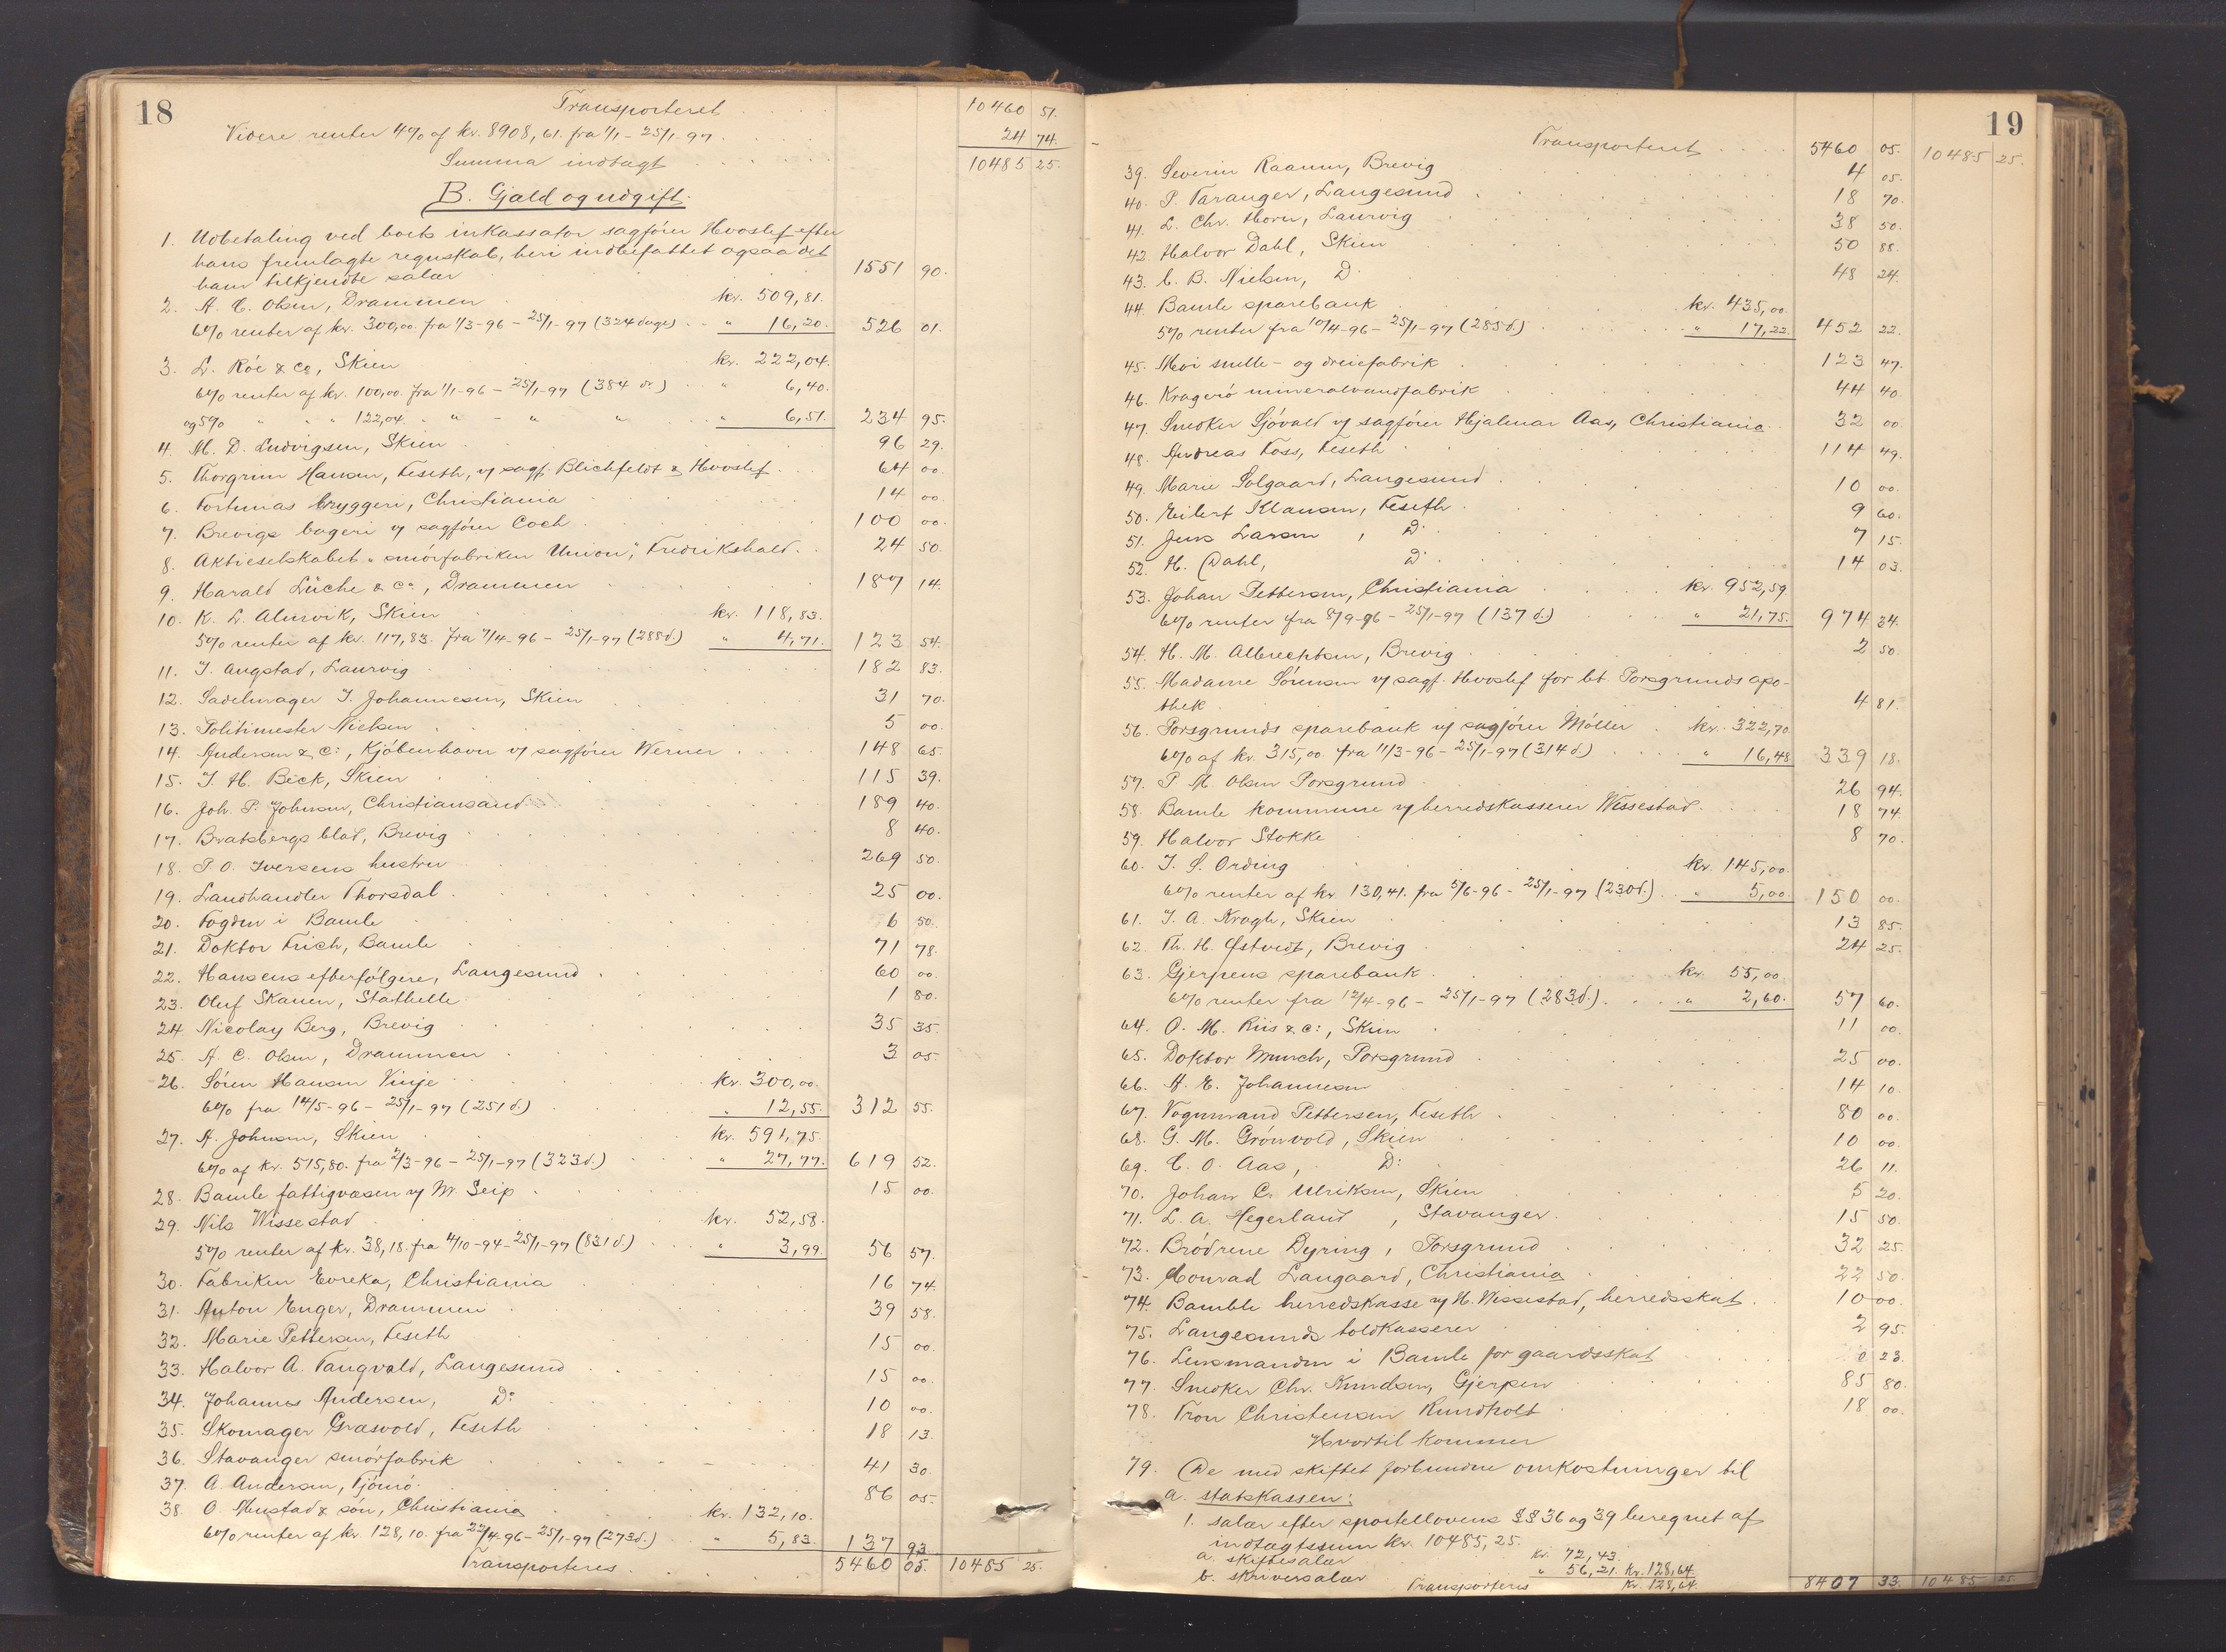 18
Transporteret 10460 51.
Videre renter 4% af kr. 8908,61. fra 1/1 - 25/1-97 24 74.
Summa indtægt 10485 25.
B. Gjæld og udgift.
1. Udbetaling ved boets inkassator sagfører Hvoslef efter
hans fremlagte regnskab, heri indbefattet ogsaa det
ham tilkjendte salær 1551 90.
2. A. C. Olsen, Drammen kr. 509,81.
6% renter af kr. 300,00. fra 1/3-96 - 25/1-97 (324 dage) " 16,20. 526 01.
3. L. Röe & Co, Skien kr. 222,04.
6% renter af kr. 100,00. fra 1/1-96 - 25/1-97 (384 d.) " 6,40.
og 5% " " " 122,04. " " - " " " 6,51. 234 95.
4. M. D. Ludvigsen, Skien 96 29.
5. Thorgrim Hansen, Feseth, v/ sagf. Blichfeldt & Hvoslef 64 00.
6. Fortunas bryggeri, Christiania 14 00.
7. Brevigs bageri v/ sagfører Coch 100 00.
8. Aktieselskabet "smörfabriken Union", Fredrikshald. 24 50.
9. Harald Lüche & Co, Drammen 187 14.
10. K. L. Alurvik, Skien kr. 118,83.
5% renter af kr. 117,83. fra 7/4-96 - 25/1-97 (288 d.) " 4,71. 123 54.
11. J. Augstad, Laurvig 182 83.
12. Sadelmager J. Johannesen, Skien 31 70.
13. Politimester Nielsen 5 00.
14. Andersen & C:, Kjöbenhavn v/ sagfører Werner 148 65.
15. J. H. Beck, Skien 115 39.
16. Joh. P. Johnsen, Christiansand 189 40.
17. Bratsbergs blad, Brevig 8 40.
18. P. O. Iversens hustru 269 50.
19. Landhandler Thorsdal 25 00.
20. Fogden i Bamle 6 50.
21. Doktor Frich, Bamle 71 78.
22. Hansens efterfölgere, Langesund 60 00.
23. Oluf Skauen, Stathelle 1 80.
24 Nicolay Berg, Brevig 35 35.
25. A. C. Olsen, Drammen 3 05.
26. Sören Hansen Vinje kr. 300,00.
6% fra 14/5-96 - 25/1-97 (251 d.) " 12,55. 312 55.
27. A. Johnsen, Skien kr. 591,75.
6% af kr. 515,80. fra 2/3-96 - 25/1-97 (323 d.) " 27,77. 619 52.
28. Bamle fattigvæsen v/ M. Seip 15 00.
29. Nils Wissestad kr. 52,58.
5% renter af kr. 38,18. fra 4/10-94 - 25/1-97 (831 d.) " 3,99. 56 57.
30. Fabriken Evreka, Christiania 16 74.
31. Anton Enger, Drammen 39 58.
32. Marie Pettersen, Feseth 15 00.
33. Halvor A. Tangvald, Langesund 15 00.
34. Johannes Andersen, D: 10 00.
35. Skomager Græsvold, Feseth 18 13.
36. Stavanger smörfabrik 41 30.
37. A. Andersen, Tjömö 86 05.
38. O. Mustad & sön, Christiania kr. 132,10.
6% renter af kr. 128,10. fra 22/4-96 - 25/1-97 (273 d.) " 5,83. 137 93.
Transporteres 5460 05. 10485 25.
19
Transporteret 5460 05. 10485 25.
39. Severin Raanum, Brevig 4 05.
40. P. Taranger, Langesund 18 70.
41. L. Chr. Horn, Laurvig 38 50.
42. Halvor Dahl, Skien 50 88.
43. C. B. Nielsen, D: 48 24.
44. Bamle sparebank kr. 435,00.
5% renter fra 10/4-96 - 25/1-97 (285 d.) " 17,22. 452 22.
45. Moi snelle- og dreiefabrik 123 47.
46. Kragerö mineralvandfabrik 44 40.
47. Snedker Sjövald v/ sagfører Hjalmar Aas, Christiania 32 00.
48. Andreas Foss, Feseth 114 49.
49. Marie Solgaard, Langesund 10 00.
50. Eilert Klausen, Feseth 9 60.
51. Jens Larsen, D: 7 15.
52. H. Dahl, D: 14 03.
53. Johan Pettersen, Christiania kr. 952,59.
6% renter fra 8/9-96 - 25/1-97 (137 d.) " 21,75. 974 34.
54. H. M. Albrechtsen, Brevig 2 50.
55. Madame Sörensen v/ sagf. Hvoslef for bet. Porsgrunds apo-
thek 4 81.
56. Porsgrunds sparebank v/ sagfører Möller kr. 322,70.
6% af kr. 315,00. fra 11/3-96 - 25/1-97 (314 d.) " 16,48. 339 18.
57. P. M. Olsen Porsgrund 26 94.
58. Bamle kommune v/ herredskasserer Wissestad 18 74.
59. Halvor Stokke 8 70.
60. J. S. Ording kr. 145,00.
6% renter af kr. 130,41. fra 5/6-96 - 25/1-97 (230 d.) " 5,00. 150 00.
61. J. A. Kragh, Skien 13 85.
62. Th. H. Østvedt, Brevig 24 25.
63. Gjerpens sparebank kr. 55,00.
6% renter fra 12/4-96 - 25/1-97 (283 d.) " 2,60. 57 60.
64. O. M. Riis & C:, Skien 11 00.
65. Doktor Munch, Porsgrund 25 00.
66. A. E. Johannesen 14 10.
67. Vognmand Pettersen, Feseth 80 00.
68. G. M. Grönvold, Skien 10 00.
69. C. O. Aas, D: 26 11.
70. Johan C. Ulriksen, Skien 5 20.
71. L. A. Hegerland, Stavanger 15 50.
72. Brödrene Dyring, Porsgrund 32 25.
73. Conrad Langaard, Christiania 22 50.
74. Bamble herredskasse v/ N. Wissestad, herredsskat 10 00.
75. Langesunds toldkasserer 2 95.
76. Lensmanden i Bamle for gaardsskat 0 23.
77. Snedker Chr. Knudsen, Gjerpen 85 80.
78. Tron Christensen Rundholt 18 00.
Hvortil kommer
79. De med skiftet forbundne omkostninger til
a. statskassen:
1. salær efter sportellovens §§ 36 og 39 beregnet af
indtægtssum kr. 10485,25.
a. skiftesalær kr. 72,43.
b. skriversalær " 56,21. kr. 128,64
Transporteres kr. 128,64 8407 33. 10485 25.